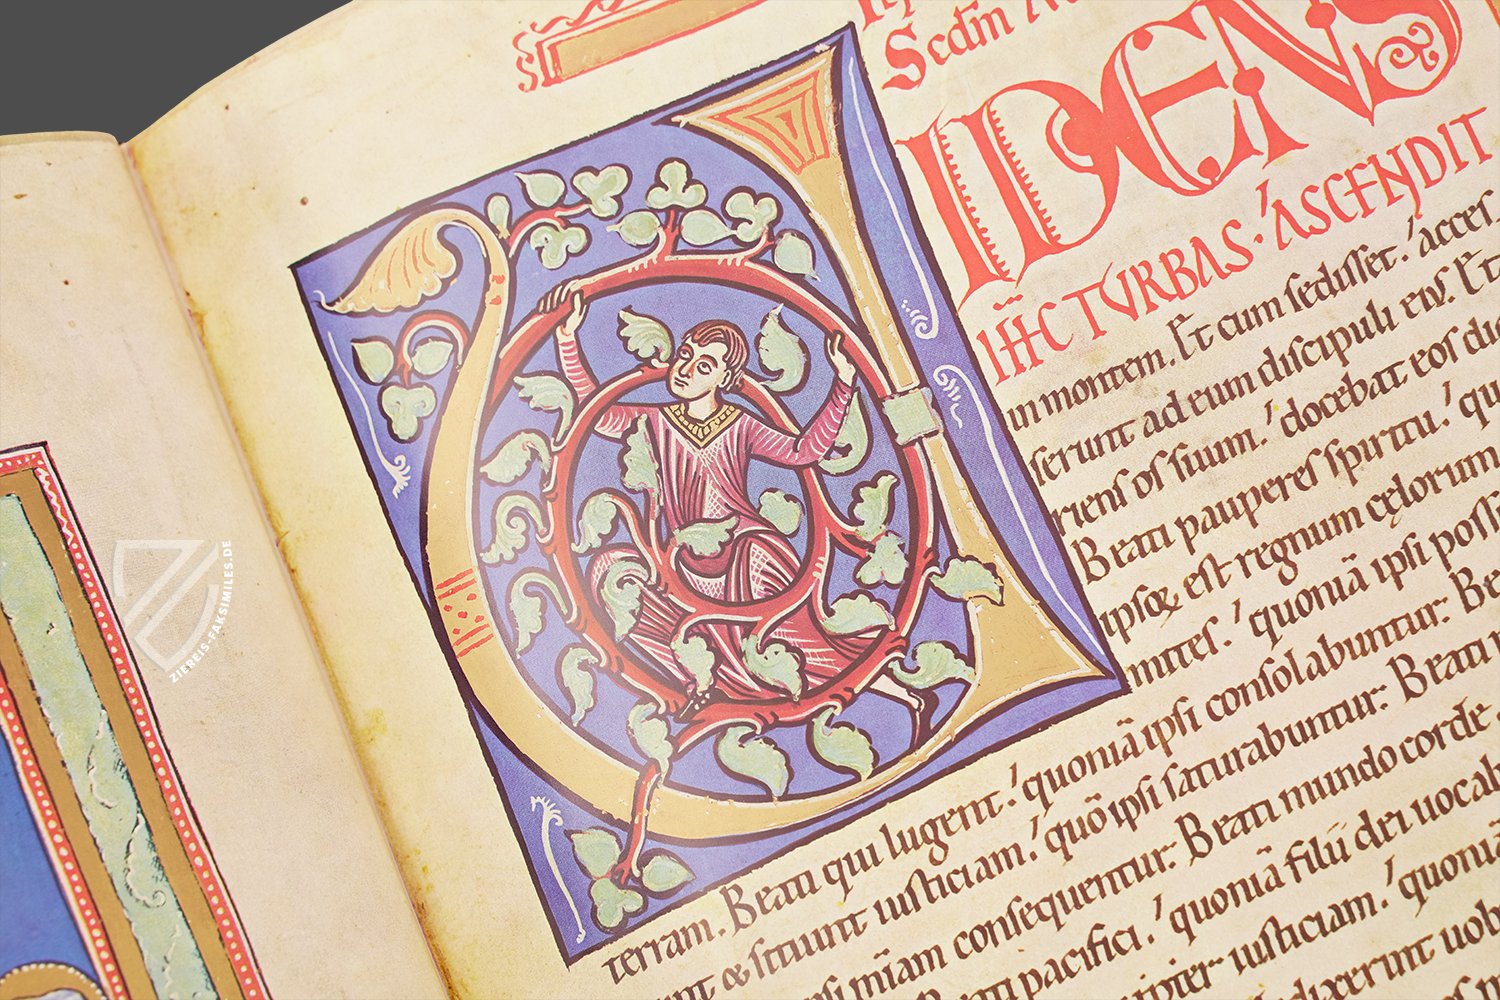 Scdm
VIDENS
IHC TVRBAS. ASCENDIT
in montem. Et cum sedisset. acces
serunt ad eum discipuli eius. Et
riens os suum. docebat eos
Beati pauperes spiritu. qu
ipsoꝝ est regnum cęlorum
mites. quoniā ipsi poss
terram. Beati qui lugent. quoniā ipsi consolabuntur. Be
& sitiunt iusticiam. quō ipsi saturabuntur. Beati
ipsi mīam consequentur. Beati mundo corde
pacifici. quoniā filii dei uocab
iusticiam. quoniā
dixerunt uob
ZIEREIS-FAKSIMILES.DE